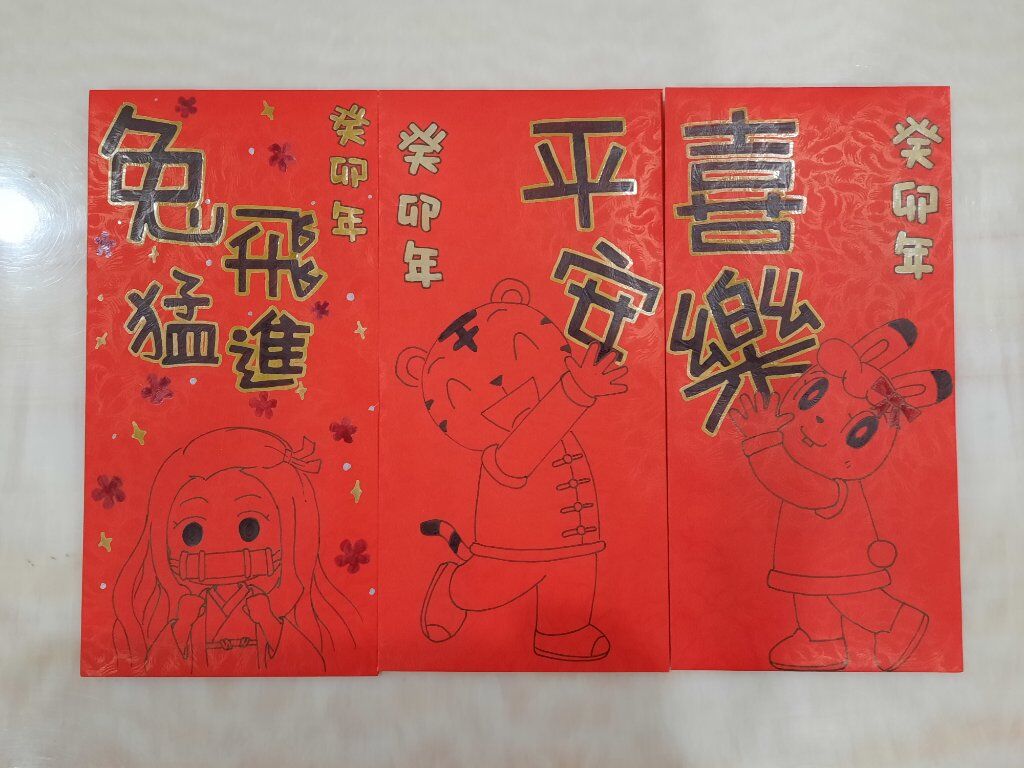 癸卯年
兔飛
猛進
癸卯年
平安
癸卯年
喜樂